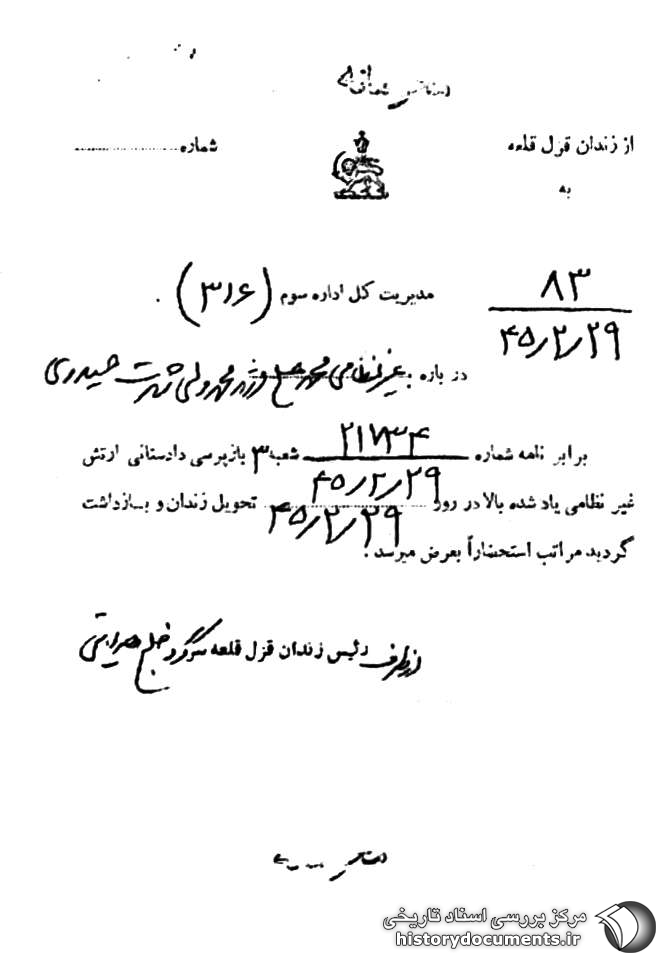 از زندان قزل قلعه
شماره
به
۸۳
۴۵/۲/۲۹
مدیریت کل اداره سوم (۳۱۶) .
در باره غیرنظامی محمد علی فرزند محمدولی شهرت حیدری
برابر نامه شماره ۲۱۷۳۴ شعبه ۳ بازپرسی دادستانی ارتش
۴۵/۲/۲۹
غیر نظامی یاد شده بالا در روز ۴۵/۲/۲۹ تحویل زندان و بازداشت
گردید مراتب استحضاراً بعرض میرسد .
از طرف رئیس زندان قزل قلعه سرگرد
مرکز بررسی اسناد تاریخی
historydocuments.ir